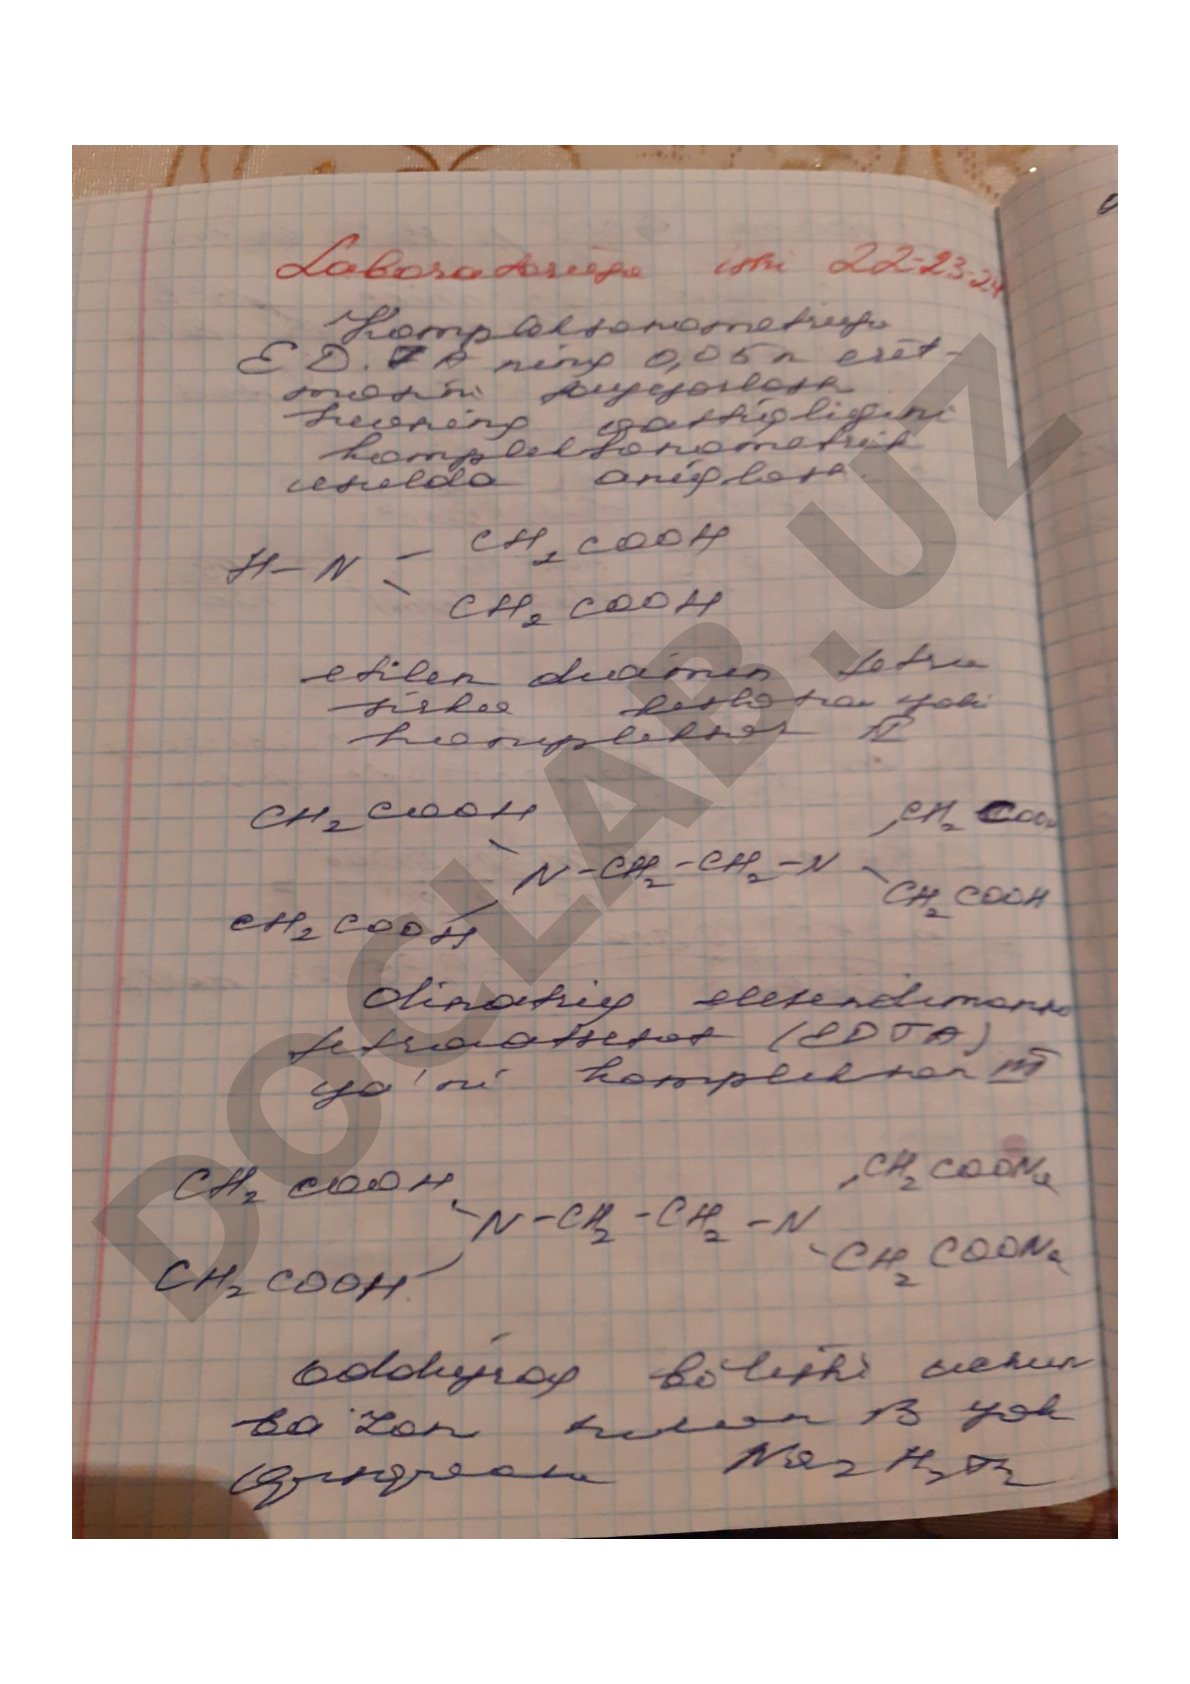 Laboratoriya ishi 22-23-24
Kompleksonometriya
E D.T A ning 0,05 n erit-
masini tayyorlash
suvning qattiqligini
kompleksonometrik
usulda aniqlash.
CH2 COOH
H-N
CH2 COOH
etilen diamin tetra
sirka kislotasi yoki
komplekson II
CH2 COOH CH2 COOH
N-CH2-CH2-N
CH2 COOH CH2 COOH
dinatriy
tetraatsetat (EDTA)
ya'ni komplekson III
CH2 COOH CH2 COONa
N-CH2-CH2-N
CH2 COOH CH2 COONa
oddiyroq bo'lishi uchun
ba'zan B yok
qisqacha Na2 H2
DOCLAB.UZ